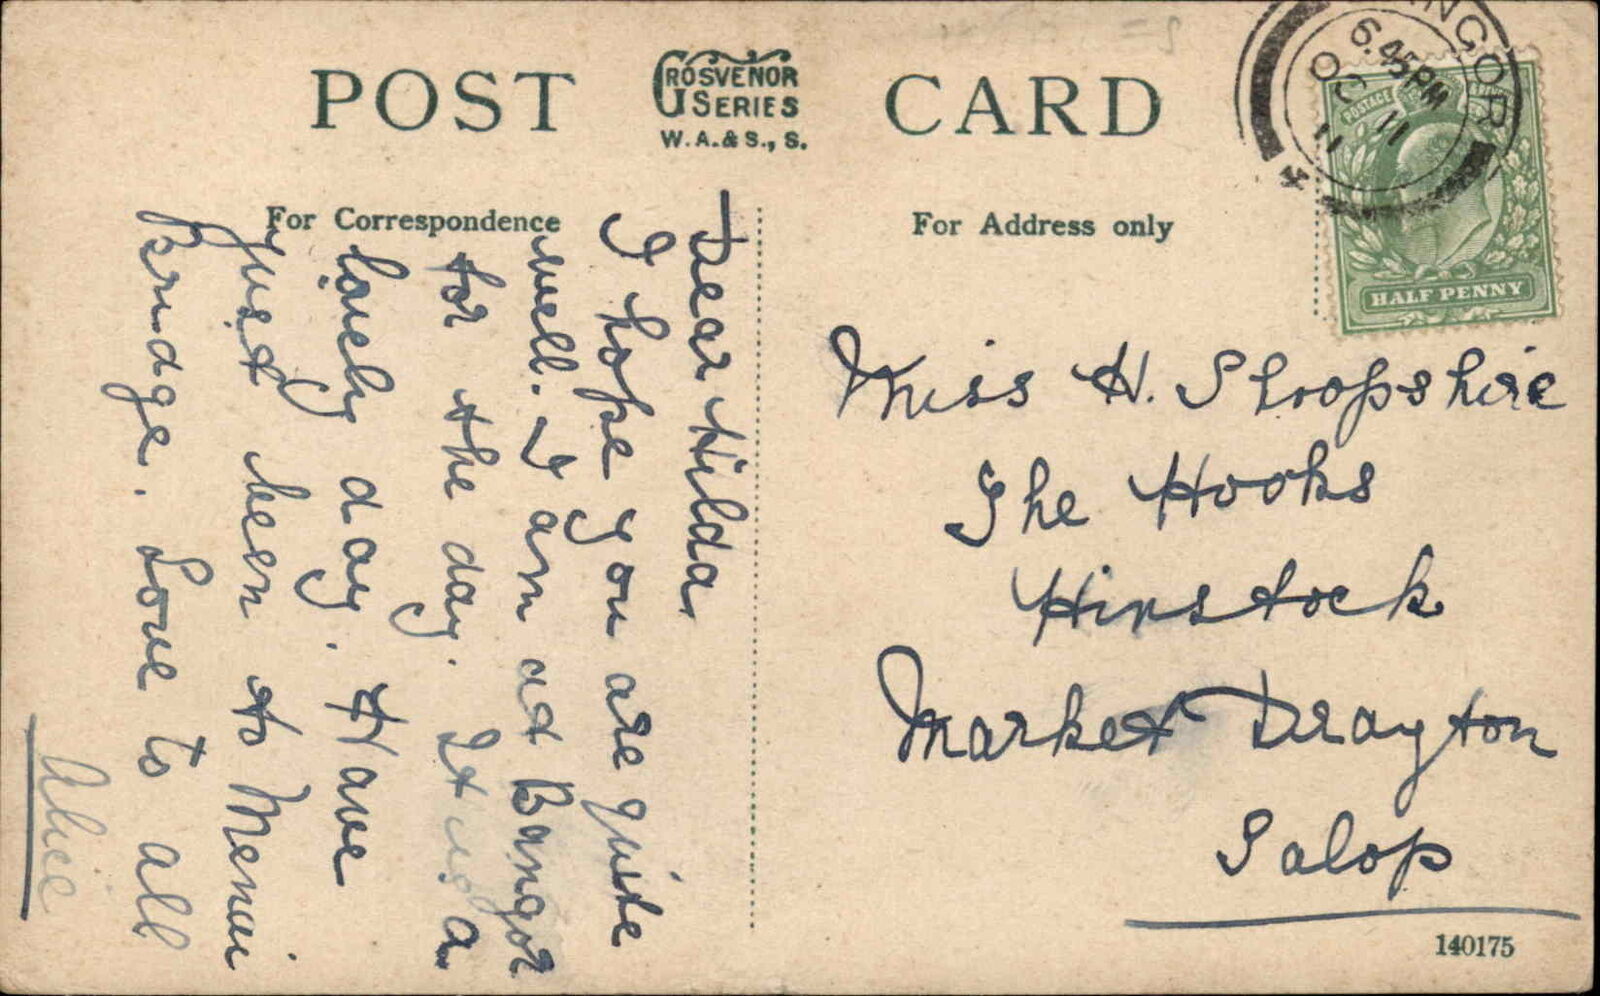 POST
GROSVENOR
SERIES
W.A.& S., S.
CARD
For Correspondence
For Address only
NGOR
6.45PM
OC 11
11
POSTAGE
HALF PENNY
Dear Hilda,
I hope you are quite
well. I am at Bangor
for the day. It is a
lovely day. Have
just been to Menai
Bridge. Love to all
Alice
Miss H. Shropshire
The Hooks
Hinstock
Market Drayton
Salop
140175